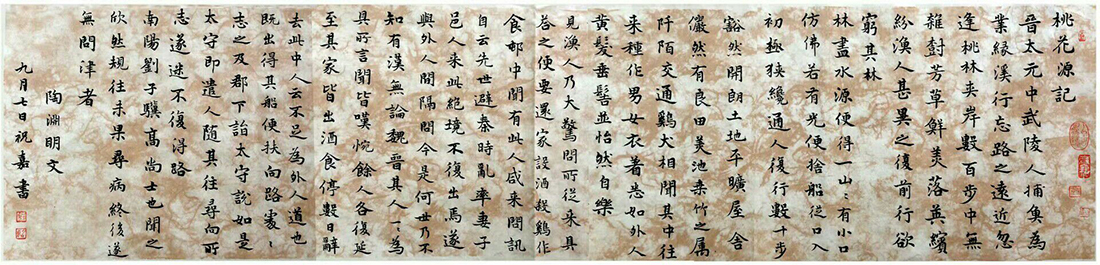 桃花源記
晉太元中武陵人捕魚為
業緣溪行忘路之遠近忽
逢桃林夾岸數百步中無
雜樹芳草鮮美落英繽
紛漁人甚異之復前行欲
窮其林
林盡水源便得一山〻有小口
仿佛若有光便捨船從口入
初極狹纔通人復行數十步
豁然開朗土地平曠屋舍
儼然有良田美池桑竹之屬
阡陌交通雞犬相聞其中往
來種作男女衣著悉如外人
黃髮垂髫並怡然自樂
見漁人乃大驚問所從來具
答之便要還家設酒殺雞作
食邨中聞有此人咸來問訊
自云先世避秦時亂率妻子
邑人來此絕境不復出焉遂
與外人間隔問今是何世乃不
知有漢無論魏晉其人一〻為
具所言聞皆嘆惋餘人各復延
至其家皆出酒食停數日辭
去此中人云不足為外人道也
既出得其船便扶向路處〻
志之及郡下詣太守說如是
太守即遣人隨其往尋向所
志遂迷不復得路
南陽劉子驥高尚士也聞之
欣然規往未果尋病終後遂
無問津者
陶淵明文
九月七日祝嘉書